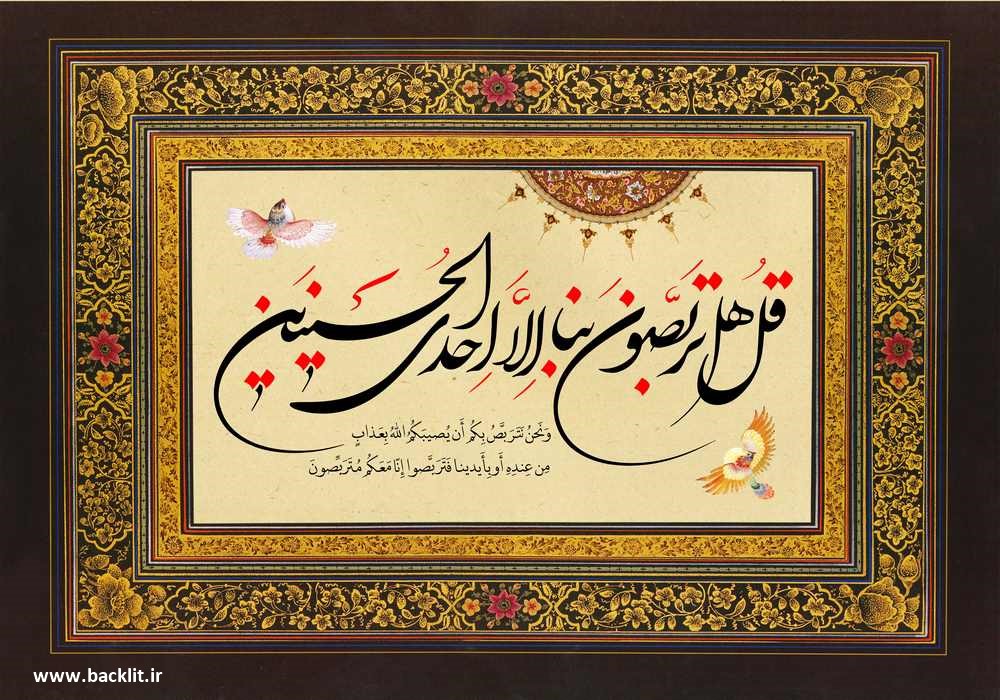 قُل هَل تَرَبَّصونَ بِنا إِلّا إِحدَى الحُسنَيَينِ
وَنَحنُ نَتَرَبَّصُ بِكُم أَن يُصيبَكُمُ اللهُ بِعَذابٍ
مِن عِندِهِ أَو بِأَيدينا فَتَرَبَّصوا إِنّا مَعَكُم مُتَرَبِّصونَ
www.backlit.ir